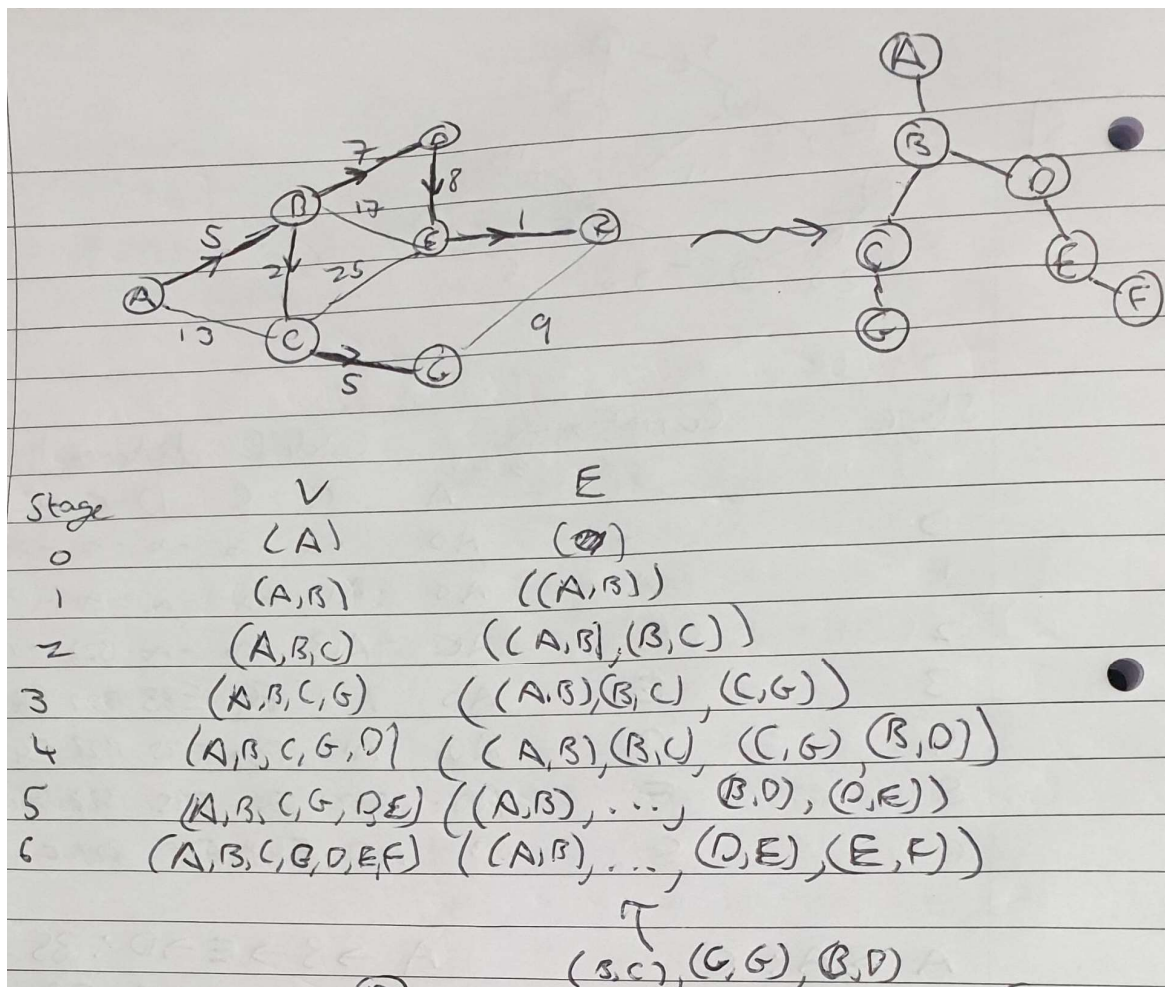 A
B
D
C
E
G
F
D
7
8
B
17
E
1
F
5
2
25
A
13
C
9
G
5
Stage V E
0 (A) ()
1 (A,B) ((A,B))
2 (A,B,C) ((A,B),(B,C))
3 (A,B,C,G) ((A,B)(B,C),(C,G))
4 (A,B,C,G,D) ((A,B),(B,C),(C,G),(B,D))
5 (A,B,C,G,D,E) ((A,B),...,(B,D),(D,E))
6 (A,B,C,G,D,E,F) ((A,B),...,(D,E),(E,F))
(B,C),(G,G),(B,D)